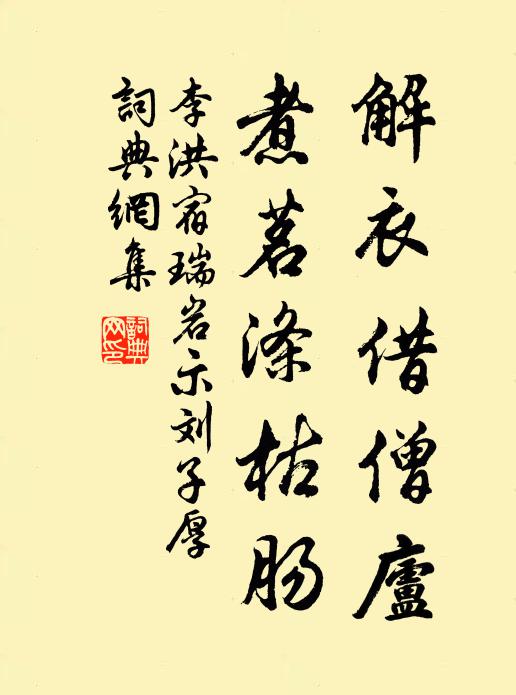 解衣借僧廬
煮茗涤枯肠
李洪宿瑞岩示刘子厚
詞典網集
詞典
网印